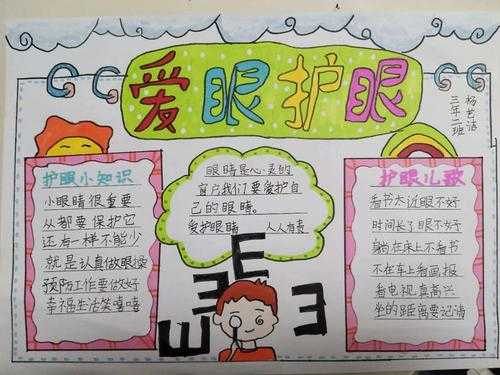 爱眼护眼
三年二班
杨艺洁
护眼小知识
小眼睛很重要
从都要保护它
还有一样不能少
就是认真做眼操
预防工作要做好
幸福生活笑嘻嘻
眼睛是心灵的
窗户我们要爱护自
己的眼睛。
爱护眼睛 人人有责
E
E
E
E
护眼儿歌
看书太近眼不好
时间长了眼不好
躺在床上不看书
不在车上看画报
看电视真高兴
坐的距离要记清